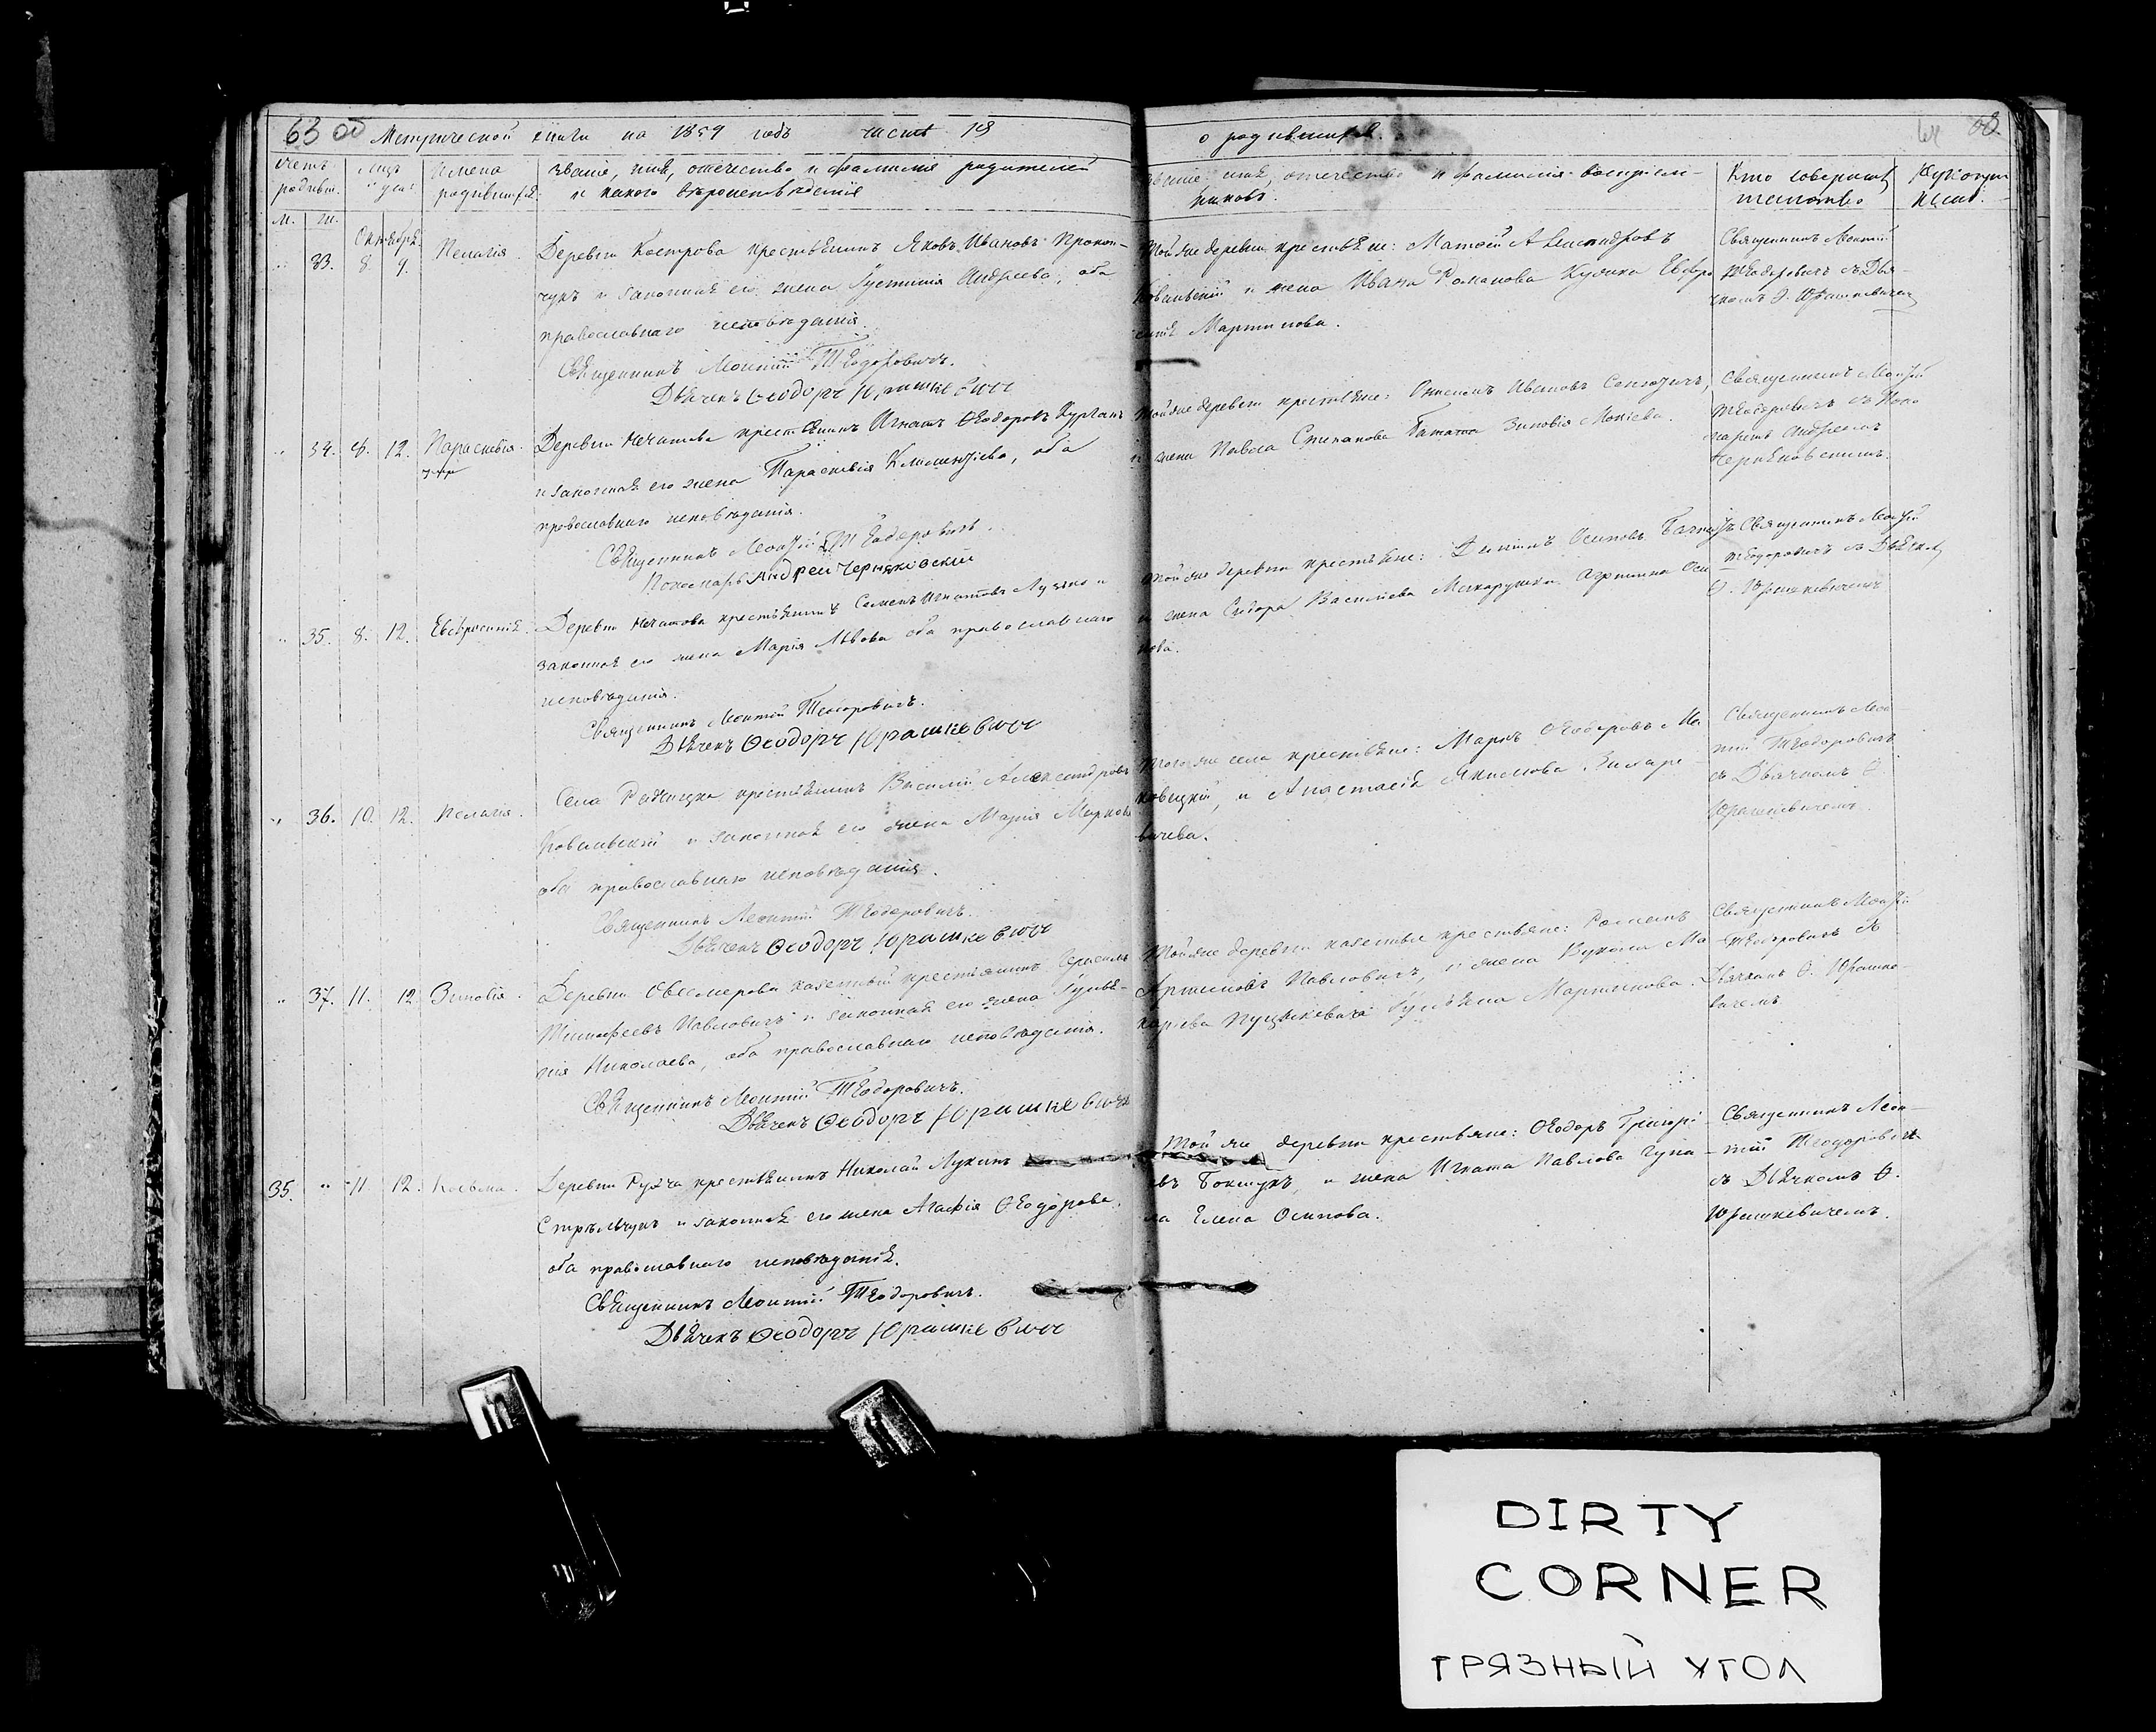 63 об Метрической книги на 1859 годъ часть 1я
о родившихся.
Счетъ родивш.
М. Ж.
Имена родившихся.
Званіе, имя, отечество и фамилия родителей
и какого вѣроисповѣданія
Званіе имя, отечество и фамилія воспріем-
никовъ.
Кто совершалъ таинство
Октября.
33. 8. 9. Пелагія.
Деревни Кострова крестьянинъ Яковъ Ивановъ Прокоп-
чукъ и законная его жена Густинія Андреева, оба
православнаго исповѣданія.
Священникъ Леонтій Теодоровичъ.
Дьячекъ Ѳеодоръ Юрашкевичъ
Той же деревни крестьяне: Матѳей Александровъ
Ковальскій и жена Ивана Романова Кулика Евфро
синія Мартинова.
Священникъ Леонтій
Теодоровичъ съ Дья-
чкомъ Ѳ. Юрашкевичемъ
34. 8. 12. Параскевія.
Деревни Нечатова крестьянинъ Игнатъ Ѳеодоровъ Курганъ
и законная его жена Параскевія Климентіева, оба
православнаго исповѣданія.
Священникъ Леонтій Теодоровичъ.
Пономарь Андрей Черняковскій
Той же деревни крестьяне: Ивановъ
и жена Павла Степанова Зиновія Мокіева.
Священникъ Леонтій
Теодоровичъ съ Поно
маремъ Андреемъ
Черняковскимъ.
35. 8. 12. Евфросинія.
Деревни Нечатова крестьянинъ Семенъ Игнатовъ Луцко и
законная его жена Марія Львова оба православнаго
исповѣданія.
Священникъ Леонтій Теодоровичъ.
Дьячекъ Ѳеодоръ Юрашкевичъ
Той же деревни крестьяне: Осиповъ
и жена Сидора Василіева Макарушка Агрипина Оси
пова.
Священникъ Леонтій
Теодоровичъ съ Дьячкомъ
Ѳ. Юрашкевичемъ
36. 10. 12. Пелагія.
Села крестьянинъ Василій Александровъ
Ковальскій и законная его жена Марія Маркова
оба православнаго исповѣданія.
Священникъ Леонтій Теодоровичъ.
Дьячекъ Ѳеодоръ Юрашкевичъ
Того же села крестьяне: Маркъ Ѳеодоровъ
и Анастасія Якимова
Священникъ Леон-
тій Теодоровичъ
съ Дьячкомъ Ѳ
Юрашкевичемъ.
37. 11. 12. Зиновія.
Деревни казенный крестьянинъ Герасимъ
Тимофеевъ Павловичъ и законная его жена Гулья-
нія Николаева, оба православнаго исповѣданія.
Священникъ Леонтій Теодоровичъ.
Дьячекъ Ѳеодоръ Юрашкевичъ
Той же деревни казенные крестьяне: Романъ
Артимовъ Павловичъ, и жена Вукола Ма
карієва Пуцыкевича Мартинова.
Священникъ Леонтій
Теодоровичъ съ
Дьячкомъ Ѳ. Юрашке-
вичемъ.
35. 11 12. Косьма.
Деревни Рудча крестьянинъ Николай Лукинъ
Стрѣльчукъ и законная его жена Агафія Ѳеодорова.
оба православнаго исповѣданія.
Священникъ Леонтій Теодоровичъ.
Дьячекъ Ѳеодоръ Юрашкевичъ
Той же деревни крестьяне: Ѳеодоръ Григорі
евъ Бокщукъ, и жена Игната Павлова
Елена Осипова.
Священникъ Леон-
тій Теодоровичъ
съ Дьячкомъ Ѳ.
Юрашкевичемъ.
DIRTY
CORNER
ГРЯЗНЫЙ УГОЛ